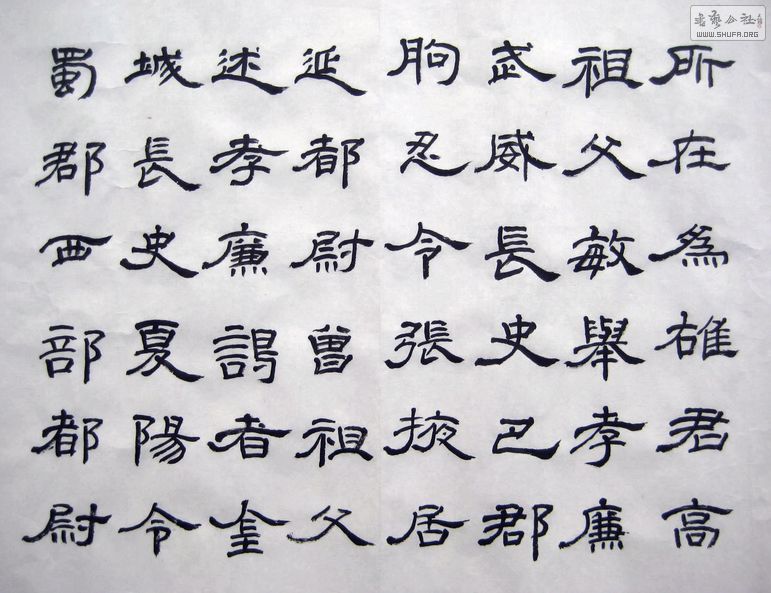 所在為雄君高
祖父敏舉孝廉
武威長史巴郡
朐忍令張掖居
延都尉曾祖父
述孝廉謁者金
城長史夏陽令
蜀郡西部都尉
書藝公社
WWW.SHUFA.ORG